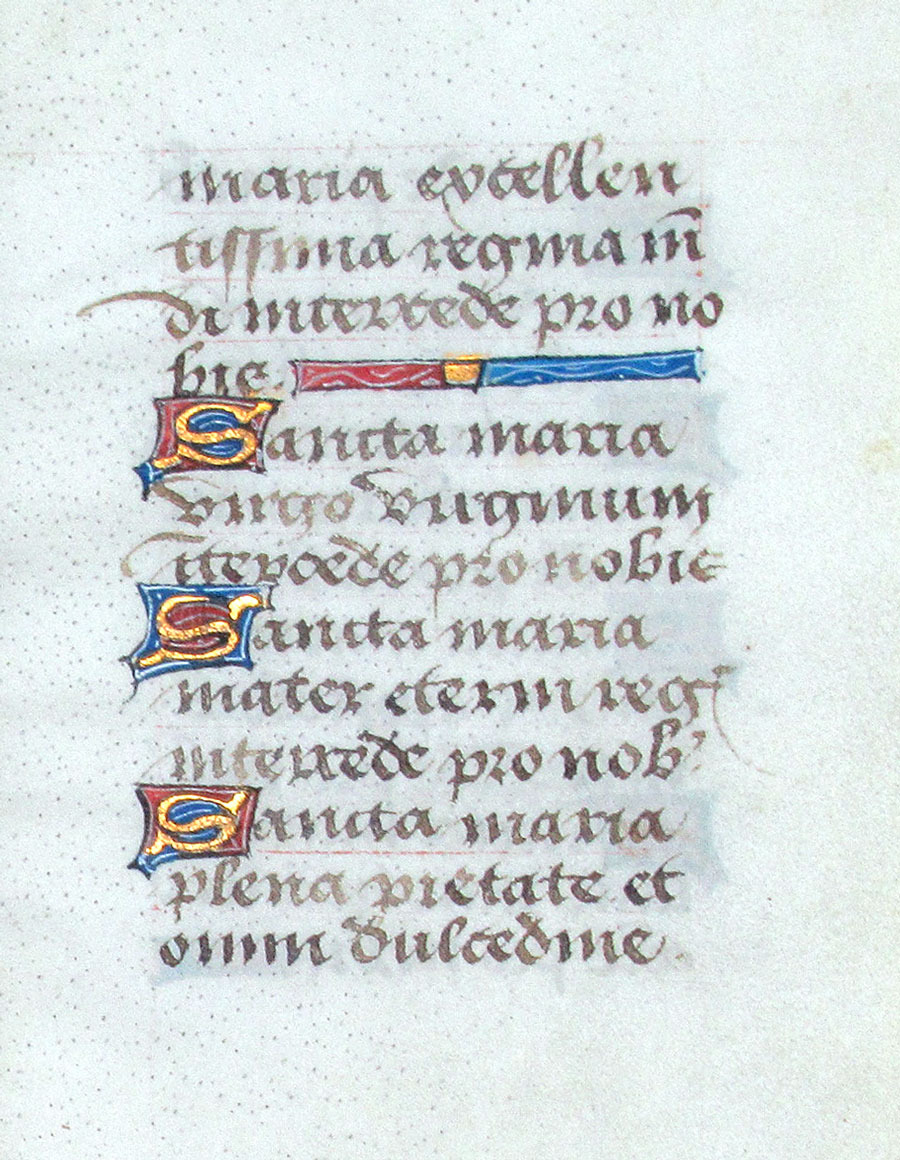 maria excellen
tissima regina mū
di intercede pro no
bis.
Sancta maria
virgo virginum
ītercede pro nobis
Sancta maria
mater eterni regꝭ
intercede pro nob'
Sancta maria
plena pietate et
omni dulcedine.